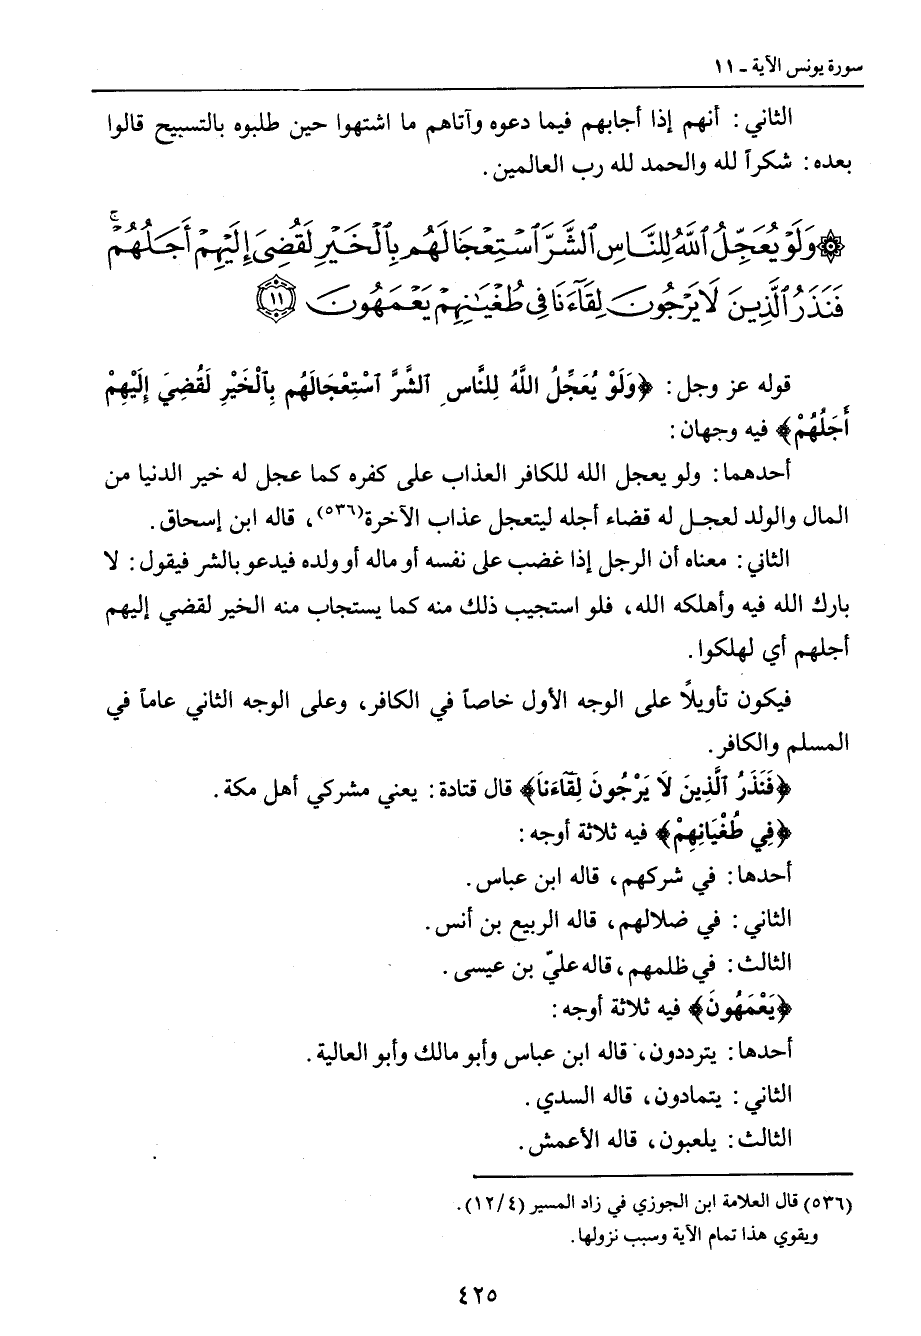 سورة يونس الآية ـ ١١
الثاني: أنهم إذا أجابهم فيما دعوه وآتاهم ما اشتهوا حين طلبوه بالتسبيح قالوا
بعده: شكراً لله والحمد لله رب العالمين.
۞ وَلَوْ يُعَجِّلُ ٱللَّهُ لِلنَّاسِ ٱلشَّرَّ ٱسْتِعْجَالَهُم بِٱلْخَيْرِ لَقُضِىَ إِلَيْهِمْ أَجَلُهُمْ ۖ
فَنَذَرُ ٱلَّذِينَ لَا يَرْجُونَ لِقَآءَنَا فِى طُغْيَـٰنِهِمْ يَعْمَهُونَ ١١
قوله عز وجل: ﴿وَلَوْ يُعَجِّلُ اللَّهُ لِلنَّاسِ ٱلشَّرَّ ٱسْتِعْجَالَهُم بِٱلْخَيْرِ لَقُضِيَ إِلَيْهِمْ
أَجَلُهُمْ﴾ فيه وجهان:
أحدهما: ولو يعجل الله للكافر العذاب على كفره كما عجل له خير الدنيا من
المال والولد لعجل له قضاء أجله ليتعجل عذاب الآخرة(٥٣٦)، قاله ابن إسحاق.
الثاني: معناه أن الرجل إذا غضب على نفسه أو ماله أو ولده فيدعو بالشر فيقول: لا
بارك الله فيه وأهلكه الله، فلو استجيب ذلك منه كما يستجاب منه الخير لقضي إليهم
أجلهم أي لهلكوا.
فيكون تأويلاً على الوجه الأول خاصاً في الكافر، وعلى الوجه الثاني عاماً في
المسلم والكافر.
﴿فَنَذَرُ ٱلَّذِينَ لاَ يَرْجُونَ لِقَآءَنَا﴾ قال قتادة: يعني مشركي أهل مكة.
﴿فِي طُغْيَانِهِمْ﴾ فيه ثلاثة أوجه:
أحدها: في شركهم، قاله ابن عباس.
الثاني: في ضلالهم، قاله الربيع بن أنس.
الثالث: في ظلمهم، قاله عليّ بن عيسى.
﴿يَعْمَهُونَ﴾ فيه ثلاثة أوجه:
أحدها: يترددون، قاله ابن عباس وأبو مالك وأبو العالية.
الثاني: يتمادون، قاله السدي.
الثالث: يلعبون، قاله الأعمش.
(٥٣٦) قال العلامة ابن الجوزي في زاد المسير (١٢/٤).
ويقوي هذا تمام الآية وسبب نزولها.
٤٢٥